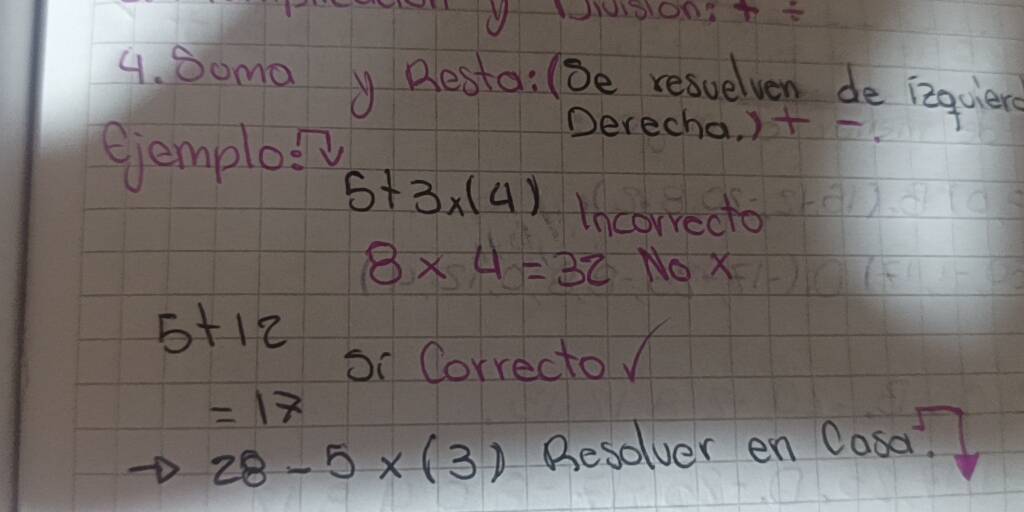 y División: + ÷
4. Suma y Resta: (Se resuelven de
Derecha.) + -.
Ejemplo:
5+3x(4) Incorrecto
8 x 4 = 32 No x
5+12
Si Correcto ✓
= 17
→ 28 - 5 x (3) Resolver en Casa.